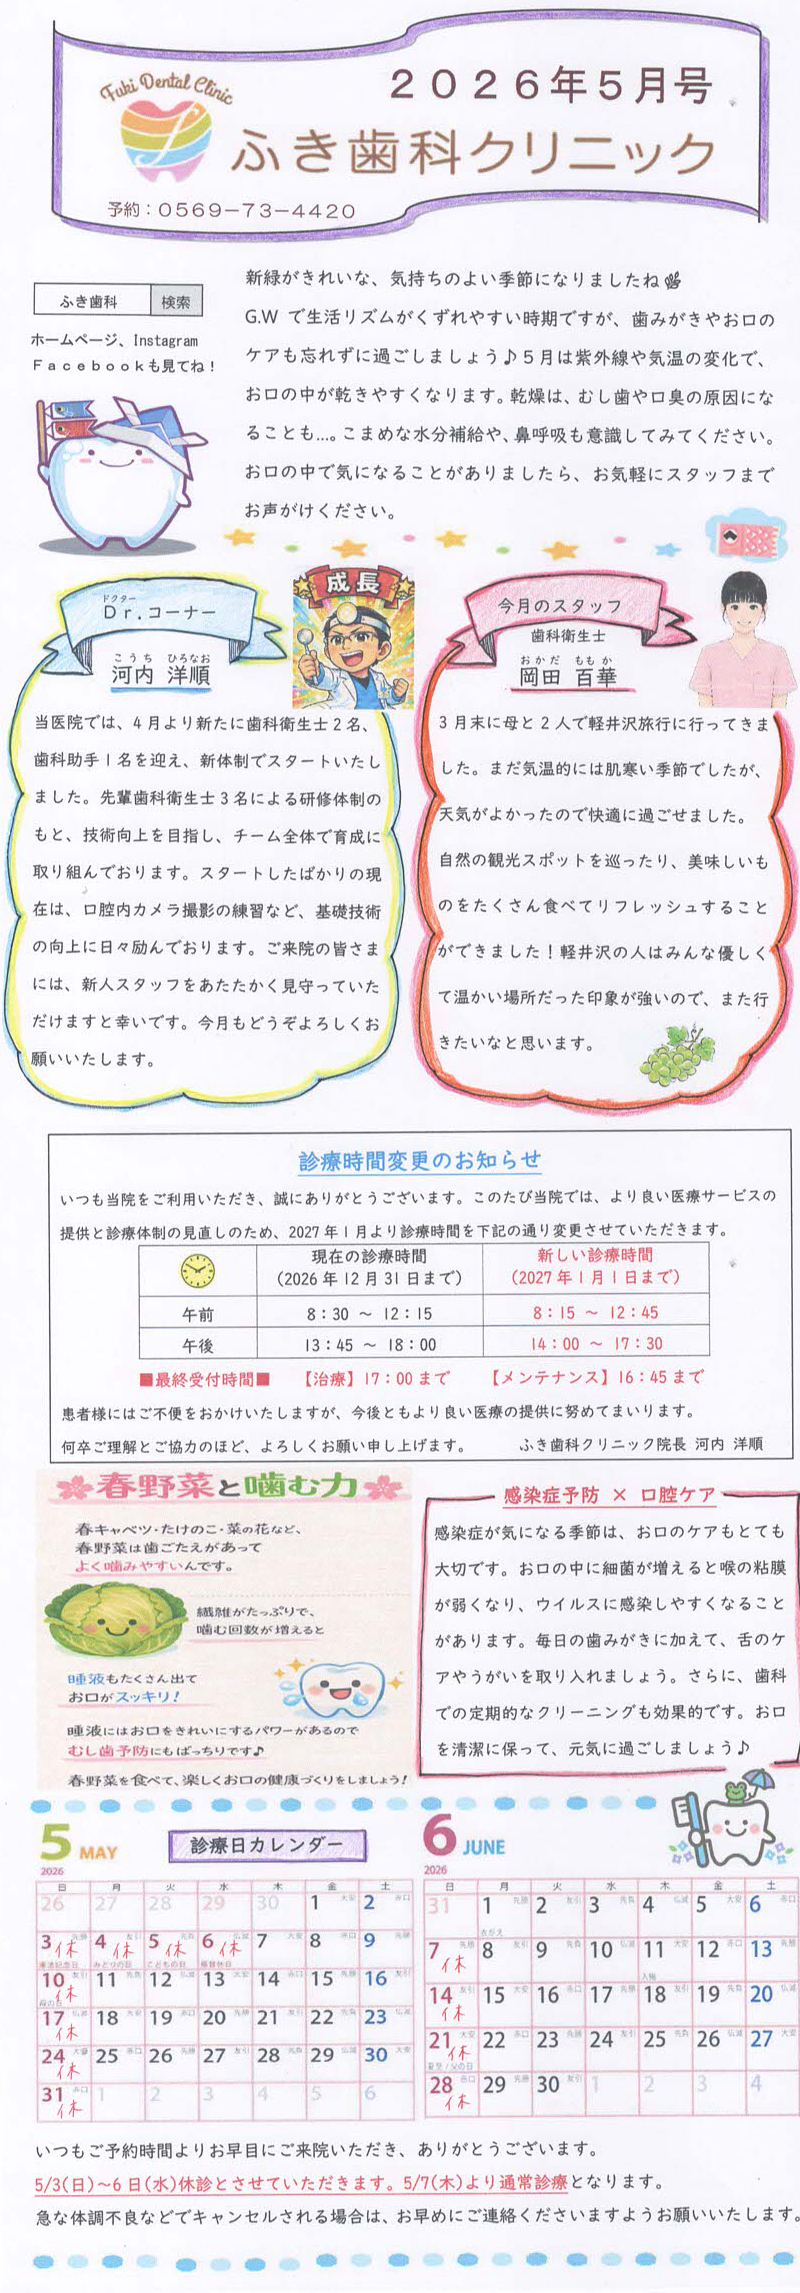 Fuki Dental Clinic
2026年5月号
ふき歯科クリニック
予約：0569-73-4420
ふき歯科 検索
ホームページ、Instagram
Facebookも見てね！
新緑がきれいな、気持ちのよい季節になりましたね
G.W で生活リズムがくずれやすい時期ですが、歯みがきやお口の
ケアも忘れずに過ごしましょう♪５月は紫外線や気温の変化で、
お口の中が乾きやすくなります。乾燥は、むし歯や口臭の原因にな
ることも…。こまめな水分補給や、鼻呼吸も意識してみてください。
お口の中で気になることがありましたら、お気軽にスタッフまで
お声がけください。
ドクター
Dr.コーナー
こうち ひろなお
河内 洋順
成長
当医院では、4月より新たに歯科衛生士2名、
歯科助手1名を迎え、新体制でスタートいたし
ました。先輩歯科衛生士3名による研修体制の
もと、技術向上を目指し、チーム全体で育成に
取り組んでおります。スタートしたばかりの現
在は、口腔内カメラ撮影の練習など、基礎技術
の向上に日々励んでおります。ご来院の皆さま
には、新人スタッフをあたたかく見守っていた
だけますと幸いです。今月もどうぞよろしくお
願いいたします。
今月のスタッフ
歯科衛生士
おかだ ももか
岡田 百華
3月末に母と2人で軽井沢旅行に行ってきま
した。まだ気温的には肌寒い季節でしたが、
天気がよかったので快適に過ごせました。
自然の観光スポットを巡ったり、美味しいも
のをたくさん食べてリフレッシュすること
ができました！軽井沢の人はみんな優しく
て温かい場所だった印象が強いので、また行
きたいなと思います。
診療時間変更のお知らせ
いつも当院をご利用いただき、誠にありがとうございます。このたび当院では、より良い医療サービスの
提供と診療体制の見直しのため、2027年1月より診療時間を下記の通り変更させていただきます。
現在の診療時間 新しい診療時間
(2026年12月31日まで) (2027年1月1日まで)
午前 8：30 ～ 12：15 8：15 ～ 12：45
午後 13：45 ～ 18：00 14：00 ～ 17：30
■最終受付時間■ 【治療】17：00まで 【メンテナンス】16：45まで
患者様にはご不便をおかけいたしますが、今後ともより良い医療の提供に努めてまいります。
何卒ご理解とご協力のほど、よろしくお願い申し上げます。 ふき歯科クリニック院長 河内 洋順
春野菜と噛む力
春キャベツ・たけのこ・菜の花など、
春野菜は歯ごたえがあって
よく噛みやすいんです。
繊維がたっぷりで、
噛む回数が増えると
唾液もたくさん出て
お口がスッキリ！
唾液にはお口をきれいにするパワーがあるので
むし歯予防にもばっちりです♪
春野菜を食べて、楽しくお口の健康づくりをしましょう！
感染症予防 × 口腔ケア
感染症が気になる季節は、お口のケアもとても
大切です。お口の中に細菌が増えると喉の粘膜
が弱くなり、ウイルスに感染しやすくなること
があります。毎日の歯みがきに加えて、舌のケ
アやうがいを取り入れましょう。さらに、歯科
での定期的なクリーニングも効果的です。お口
を清潔に保って、元気に過ごしましょう♪
5 MAY
2026
診療日カレンダー
日 月 火 水 木 金 土
26 27 28 29 30 1 大安 2 赤口
3 先勝 休 4 友引 休 5 先負 休 6 仏滅 休 7 大安 8 赤口 9 先勝
憲法記念日 みどりの日 こどもの日 振替休日
10 友引 休 11 先負 12 仏滅 13 大安 14 赤口 15 先勝 16 友引
母の日
17 仏滅 休 18 大安 19 赤口 20 先勝 21 友引 22 先負 23 仏滅
24 大安 休 25 赤口 26 先勝 27 友引 28 先負 29 仏滅 30 大安
31 赤口 休 1 2 3 4 5 6
6 JUNE
2026
日 月 火 水 木 金 土
31 1 先勝 2 友引 3 先負 4 仏滅 5 大安 6 赤口
衣がえ
7 先勝 休 8 友引 9 先負 10 仏滅 11 大安 12 赤口 13 先勝
入梅
14 友引 休 15 大安 16 赤口 17 先勝 18 友引 19 先負 20 仏滅
21 大安 休 22 赤口 23 先勝 24 友引 25 先負 26 仏滅 27 大安
夏至/父の日
28 赤口 休 29 先勝 30 友引 1 2 3 4
いつもご予約時間よりお早目にご来院いただき、ありがとうございます。
5/3(日)～6日(水)休診とさせていただきます。5/7(木)より通常診療となります。
急な体調不良などでキャンセルされる場合は、お早めにご連絡くださいますようお願いいたします。